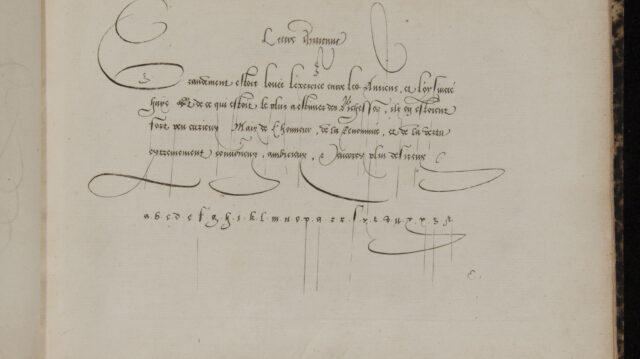 Lettre
Grandement estoit louée l'exercice entre les Anciens, et l'oysiveté
haye de ce qui estoit le plus a estimer des Richesses, ilz en estoient
fort peu curieux Mais de l'honneur, de la Renommée, et de la vertu
extremement convoiteux, ambitieux, & encores plus desireux
a b c d e f g h i k l m n o p q r s t u x y z